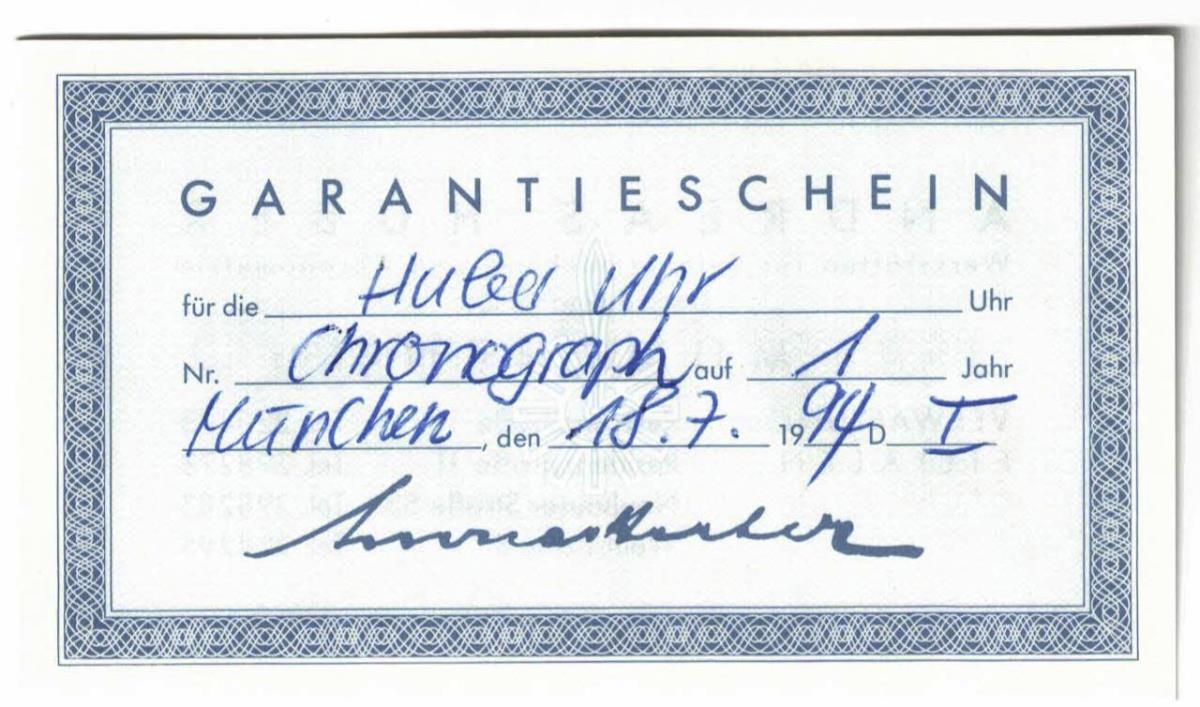 GARANTIESCHEIN
für die Huber Uhr Uhr
Nr. Chronograph auf 1 Jahr
München, den 18.7. 1994 D I